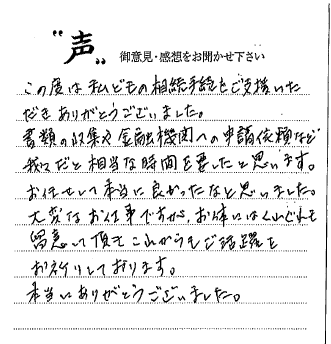 "声" 御意見・感想をお聞かせ下さい
この度は私どもの相続手続をご支援いた
だきありがとうございました。
書類の収集や金融機関への申請依頼など
我々だと相当な時間を要したと思います。
お任せして本当に良かったなと思いました。
大変なお仕事ですが、お体にはくれぐれも
留意して頂きこれからもご活躍を
お祈りしております。
本当にありがとうございました。